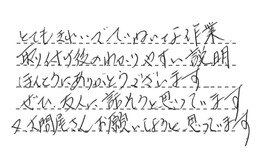 とてもきれいでていねいな作業
取り付け後のわかりやすい説明
ほんとうにありがとうございます
ぜひ友人に話そうと思っています
又問屋さんお願いしようと思ってます